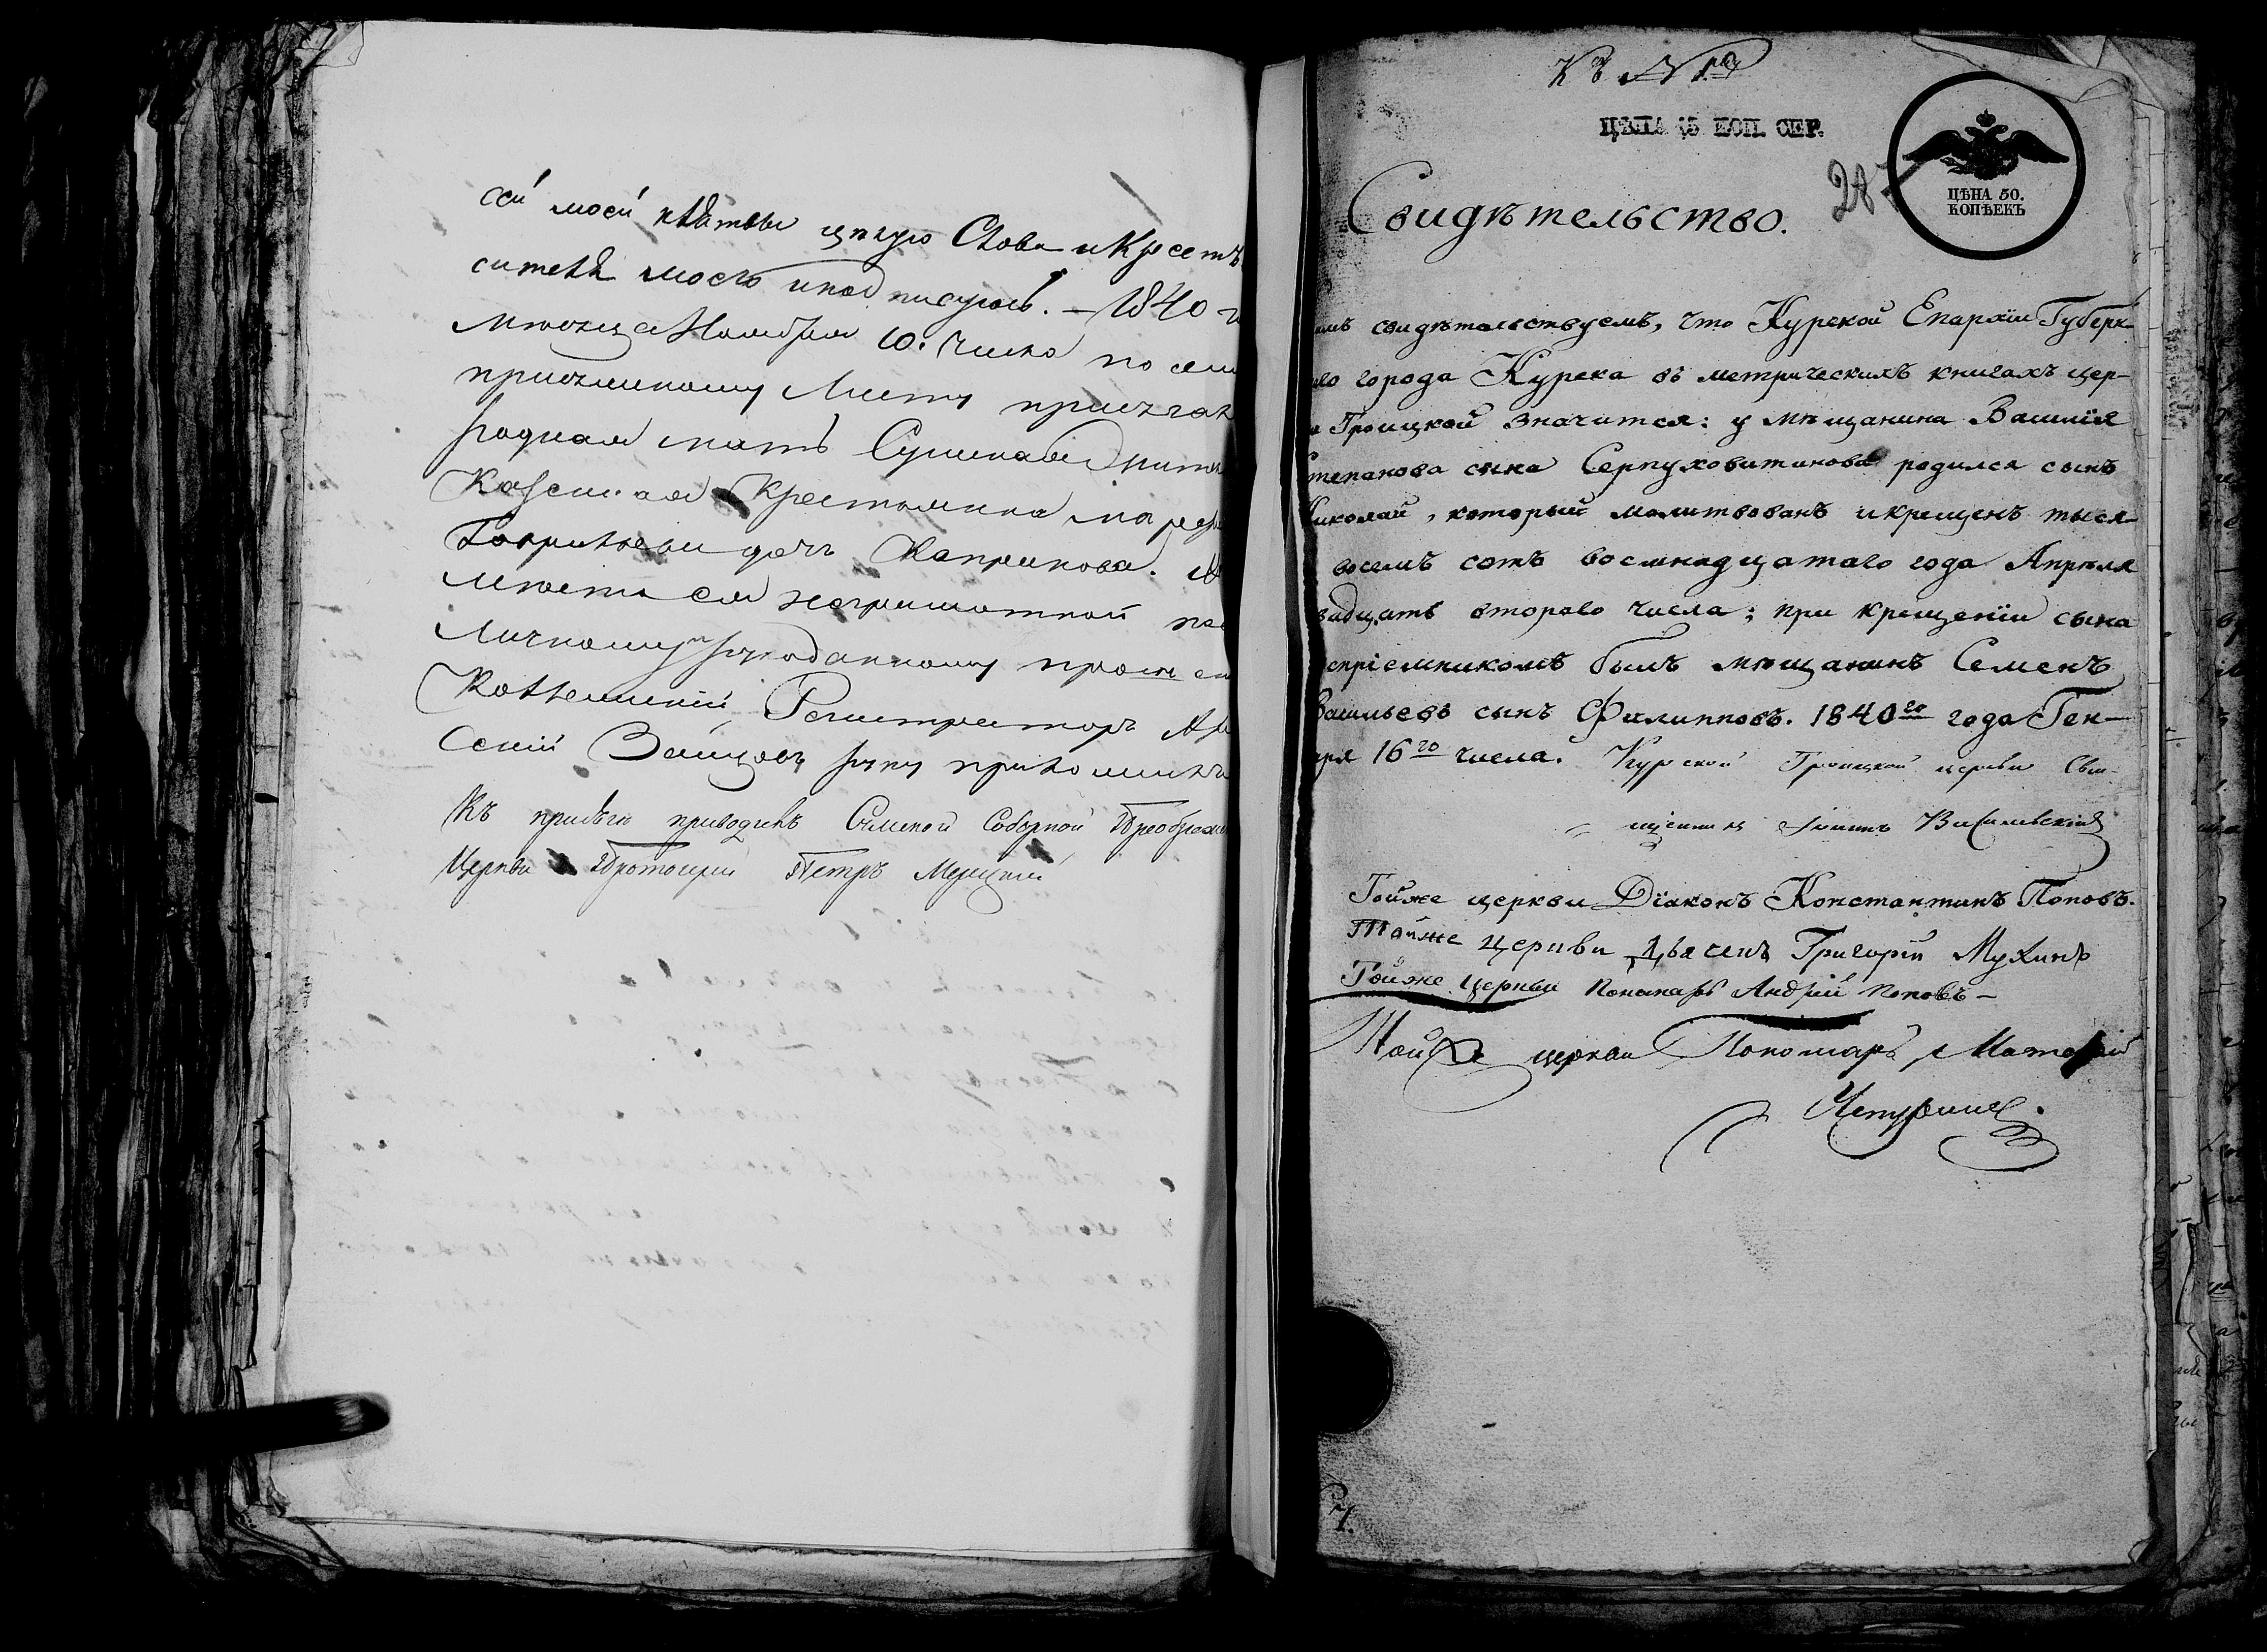 сей моей клятвы цѣлую Слова и Крестъ
сителя моего и подписуюсь. — 1840 г
Мѣсяца Ноября 10. числа по сем
присяжному Листу присягал
родная мать
Казенная Крестьянка
Гаврилова дочь Каприкова.
вмѣсто ея неграмотной по
личному рукоданному прошен
Коллежскій Регистраторъ
Сеній Зайцовъ руку приложилъ
Къ присягѣ приводилъ Сумской Соборной Преображен
Церкви Протоіерей Петръ
Къ №
ЦѢНА 15 КОП. СЕР.
28
ЦѢНА 50.
КОПѢЕКЪ
Свидѣтельство.
имъ свидѣтельствуемъ, что Курской Епархіи Губерн-
аго города Курска въ метрическихъ книгахъ цер-
и Троицкой значится: у мѣщанина Василія
Степанова сына Серпуховитинова родился сынъ
Николай, который молитвованъ и крещенъ тыся-
восемь сотъ восмнадцатаго года Апрѣля
вадцать втораго числа; при крещеніи сына
спріемникомъ былъ мѣщанинъ Семенъ
Васильевъ сынъ Филипповъ. 1840го года Ген-
аря 16го числа. Курской Троицкой церкви Свя-
щенникъ Іоаннъ Васильевскій
Тойже церкви Діаконъ Константинъ Поповъ.
Тойже Церкви Дьячекъ Григорій Мухинъ
Тойже Церкви Пономарь Андрей Поповъ —
Тойже церкви Пономарь Матвей
7.